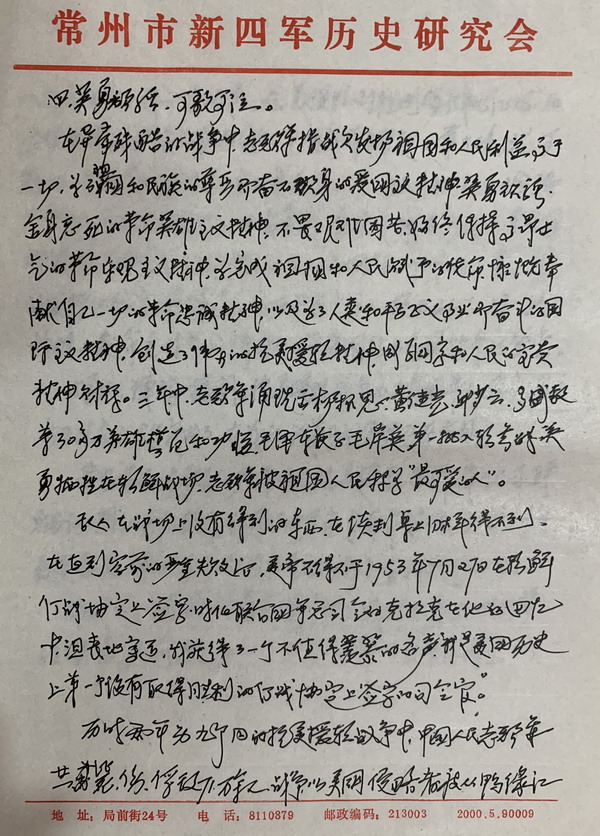 常州市新四军历史研究会
四、英勇顽强、可歌可泣。
在异常残酷的战争中志愿军指战员发扬祖国和人民利益高于
一切、为了祖国和民族的尊严而奋不顾身的爱国主义精神、英勇顽强、
舍身忘死的革命英雄主义精神、不畏艰难困苦、始终保持高昂士
气的革命乐观主义精神、为完成祖国和人民赋予的使命、慷慨奉
献自己一切的革命忠诚精神、以及为了人类和平与正义事业而奋斗的国
际主义精神、创造了伟大的抗美援朝精神、成了国家和人民的宝贵
精神财富。三年中、志愿军涌现出杨根思、黄继光、邱少云、
等30多万英雄模范和功臣、毛泽东长子毛岸英第一批入朝参战、英
勇牺牲在朝鲜战场、志愿军被祖国人民称为"最可爱的人"。
敌人在战场上没有得到的东西、在谈判桌上同样得不到、
在遭到空前的严重失败之后、美帝不得不于1953年7月27日在朝鲜
停战协定上签字、时任联合国军总司令的克拉克在他的回忆
中沮丧地写道、我获得了一个不值得羡慕的名声、就是美国历史
上第一个没有取得胜利的停战协定上签字的司令官。"
历时两年九个月的抗美援朝战争中、中国人民志愿军
共毙、伤、俘敌71万余人、战争以美国侵略者被从鸭绿江
地 址：局前街24号 电 话：8110879 邮政编码：213003 2000.5.90009